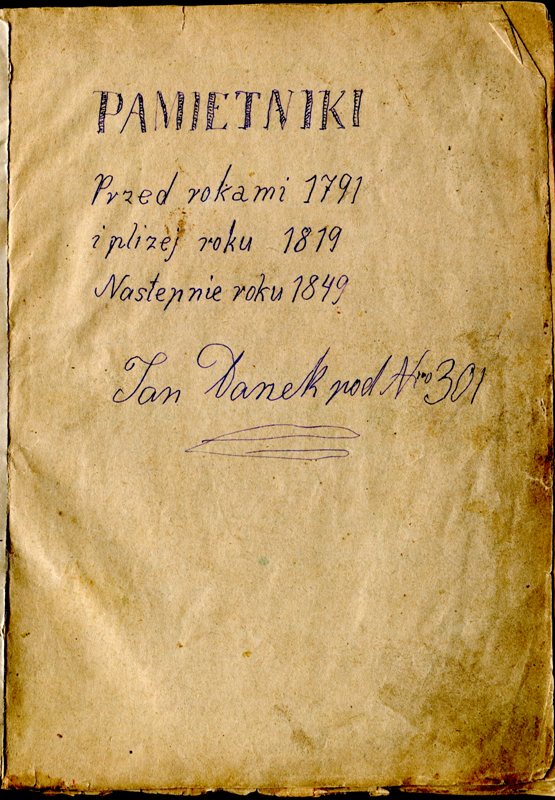 PAMIETNIKI
Przed rokami 1791
i plizej roku 1819
Nastepnie roku 1849
Jan Danek pod Nro 301